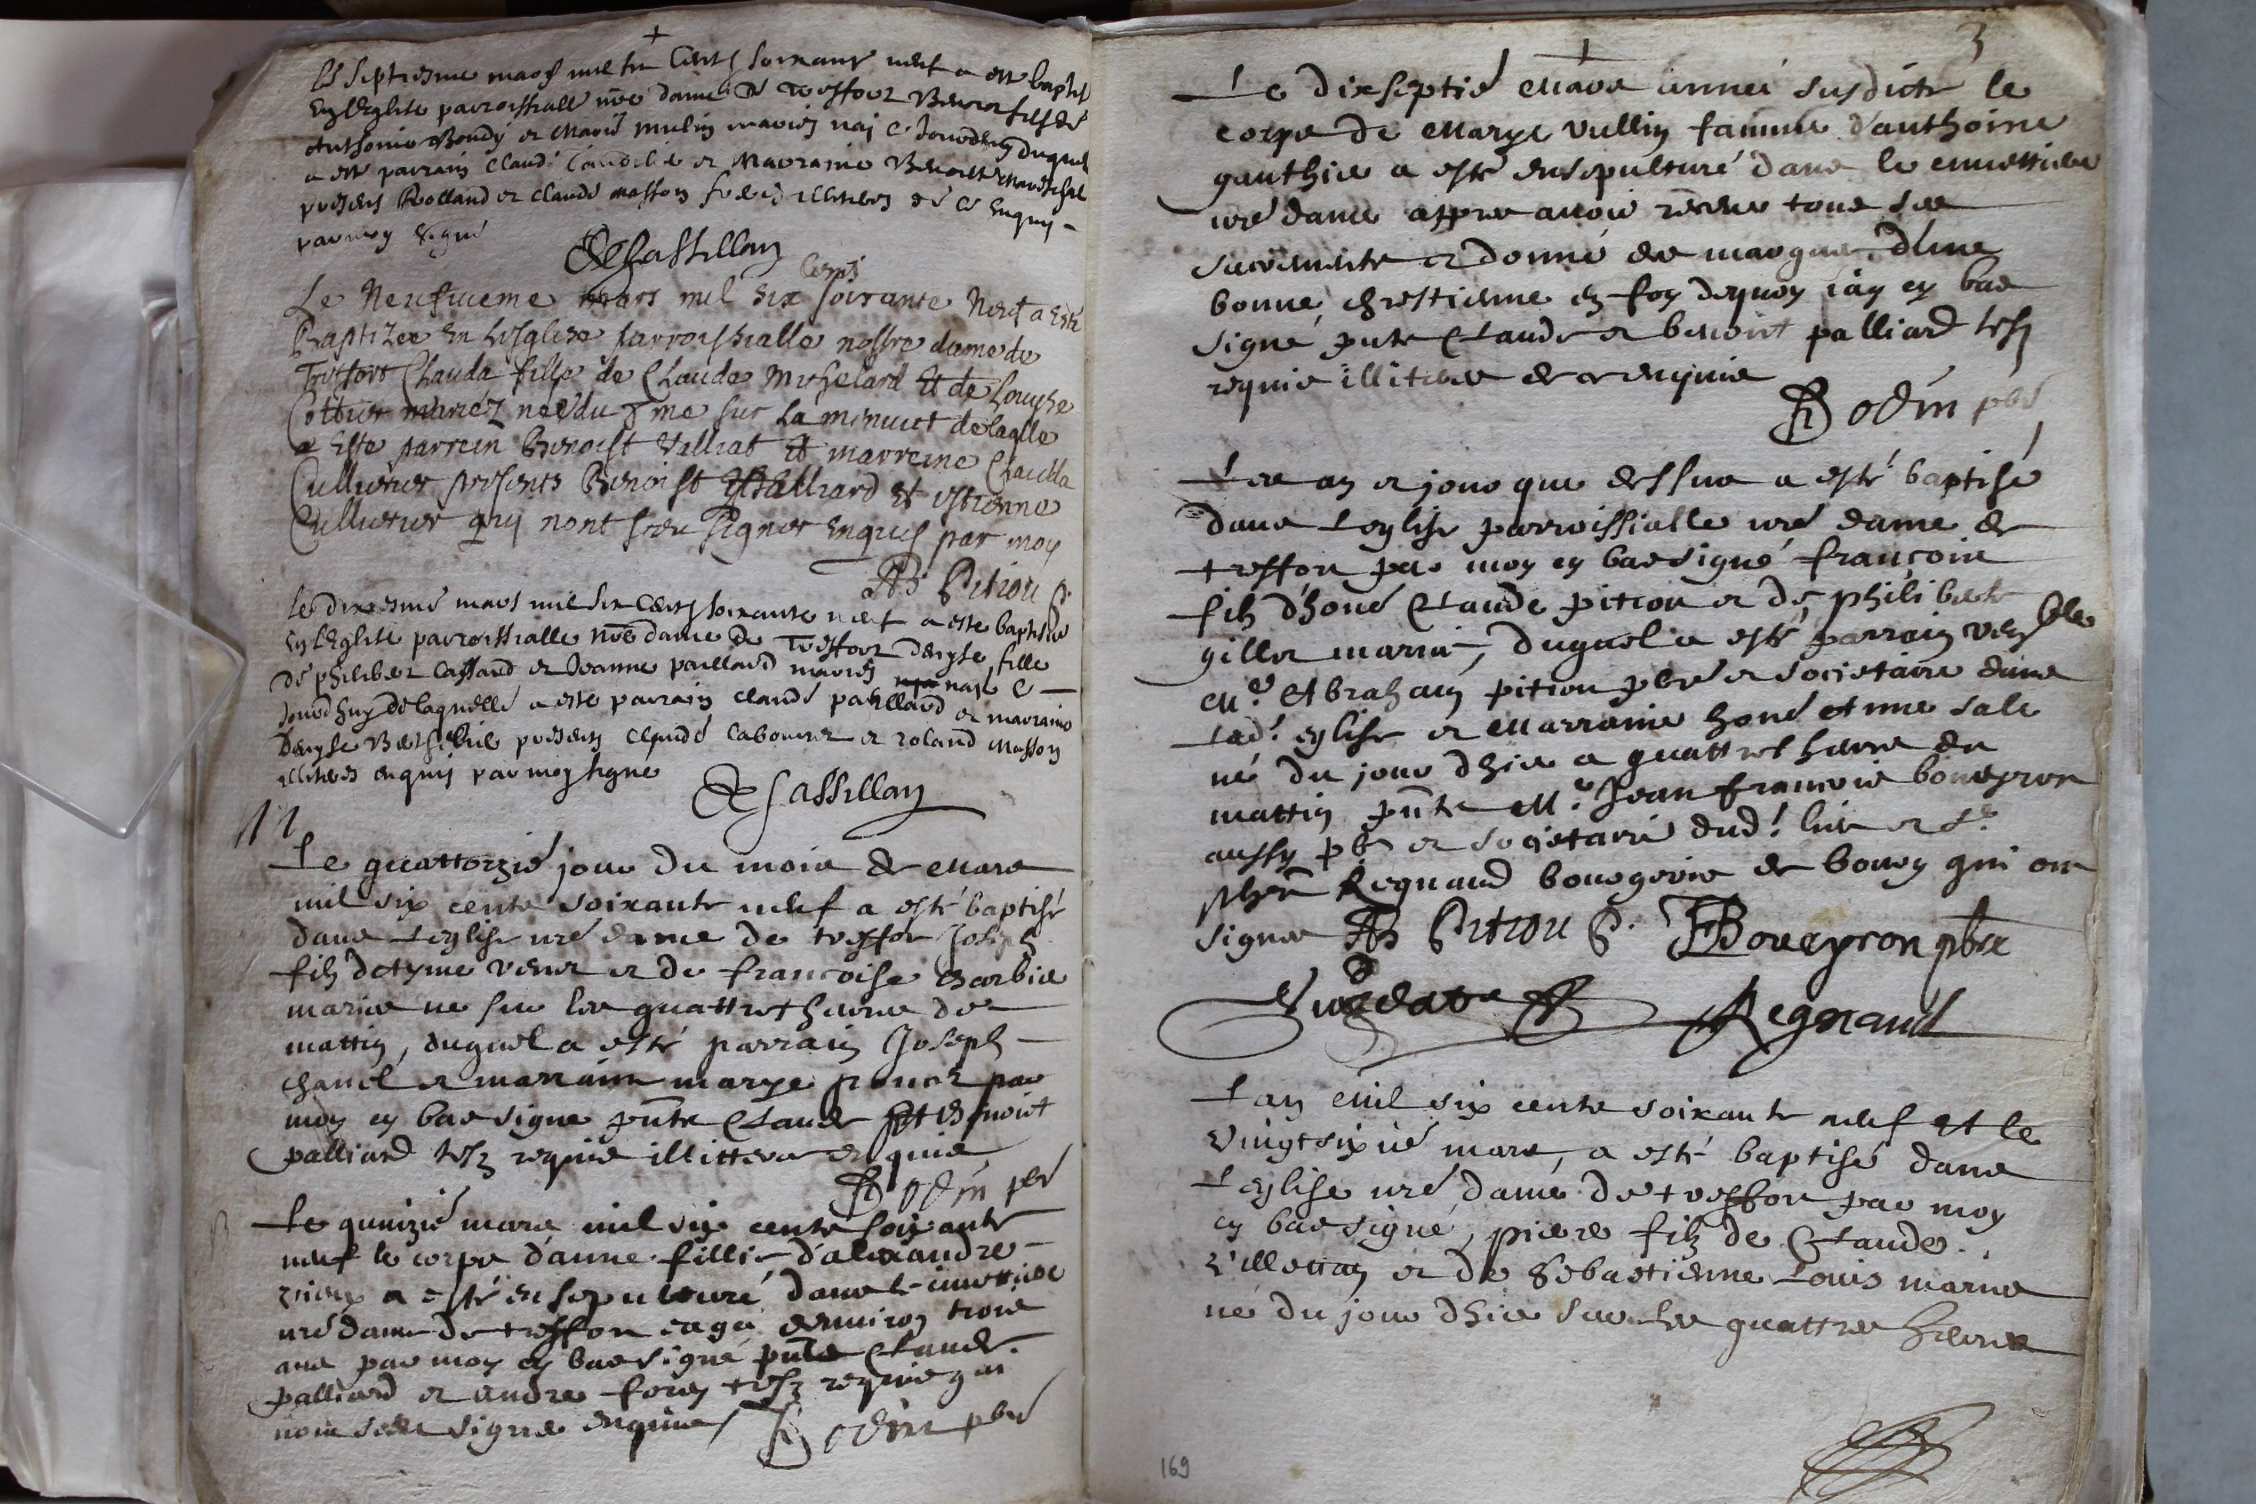 Le septiesme mars mil six Cents soixante neuf a esté baptisé
En L'Eglise parroissialle nre dame de Treffort Benoist fils de
Anthoine Bondy et Marie mulin mariés
a esté parrain Claude et Marraine Benoiste Mareschal
presens Rolland et Claude masson illiterés de ce Enquis
par moy signé
De Sassillan
Cents
Le Neufvieme mars mil six soixante Neuf a Esté
Baptizée En Lesglise parroissialle nostre dame de
Treffort Clauda fille de Claude Michelard Et de Louyse
Cottier mariéz née du 7me sur La minuict de laqlle
a Este parrein Benoist Valliat Et marreine Clauda
Cullierier presents Benoist Palliard Et estienne
Cullierier quy nont sceu signer enquis par moy
AB Pitiou P.
le dixiesme mars mil six Cents soixante neuf a esté baptisée
En L'Eglise parroissialle nre dame de Treffort denyse fille
de philiber Cassard et Jeanne paillard mariés naye ce
Jourdhuy de laquelle a esté parrain claude paillard et marraine
denyse presens claude labourier et roland Masson
illiterés enquis par moy signé
De Sassillan
11
Le quattorzié jour du mois de Mars
mil six cents soixante neuf a esté baptisé
dans Leglise nre dame de treffor Joseph
filz detyenne et de francoise Barbie
maries ne sur les quattres heures de
mattin, duquel a esté parrain Joseph
chanel et marraine marye par
moy cy bas signe pnts Claude Et Benoict
palliard tesz requis illitteres enquis
Bodin pbr
Le quinzié mars mil six cents soixante
neuf le corps d'anne fillie d'alexandre
a esté ensepulturé dans le cimettiere
nre dame de treffor eagé denviron trois
ans par moy cy bas signé pnts Claude
palliard et andre tesz requis qui
nont sceu signer enquis / Bodin pbr
3
Le dixseptié Mars année susdicte le
corps de Marye Vullin famme d'anthoine
gauthier a esté ensepulturé dans le cimettiere
nre dame appres avoir receue tous ses
sacrements et donné des marques d'une
bonne chrestienne en foy dequoy iay cy bas
signé pnts Claude et benoict palliard tesz
requis illiteres de ce enquis
Bodin pbr
Les an et jour que dessus a esté baptisé
dans Leglise parroissialle nre dame de
treffor par moy cy bas signé françois
filz d'honé Claude pitiou et de philiberte
gillet mariés, duquel a esté parrain ven ble
Mre Abraham pitiou pbre et societaire dans
lad. eglise et Marraine honé anne sale
né du jour dhier a quattres heures du
mattin pnts Mre Jean francois boueyron
aussy pbr et societaire dud. lieu et Sr
Regnaud bourgeois de bourg qui ont
signes AB Pitiou P. JF Boueyron pbre
Regnaud
Lan Mil six cents soixante neuf et le
vingtsixié mars, a esté baptisé dans
Leglise nre dame de treffor par moy
cy bas signé, piere filz de Claude
et de Sebastienne Louis maries
né du jour dhier sur les quattres heures
169